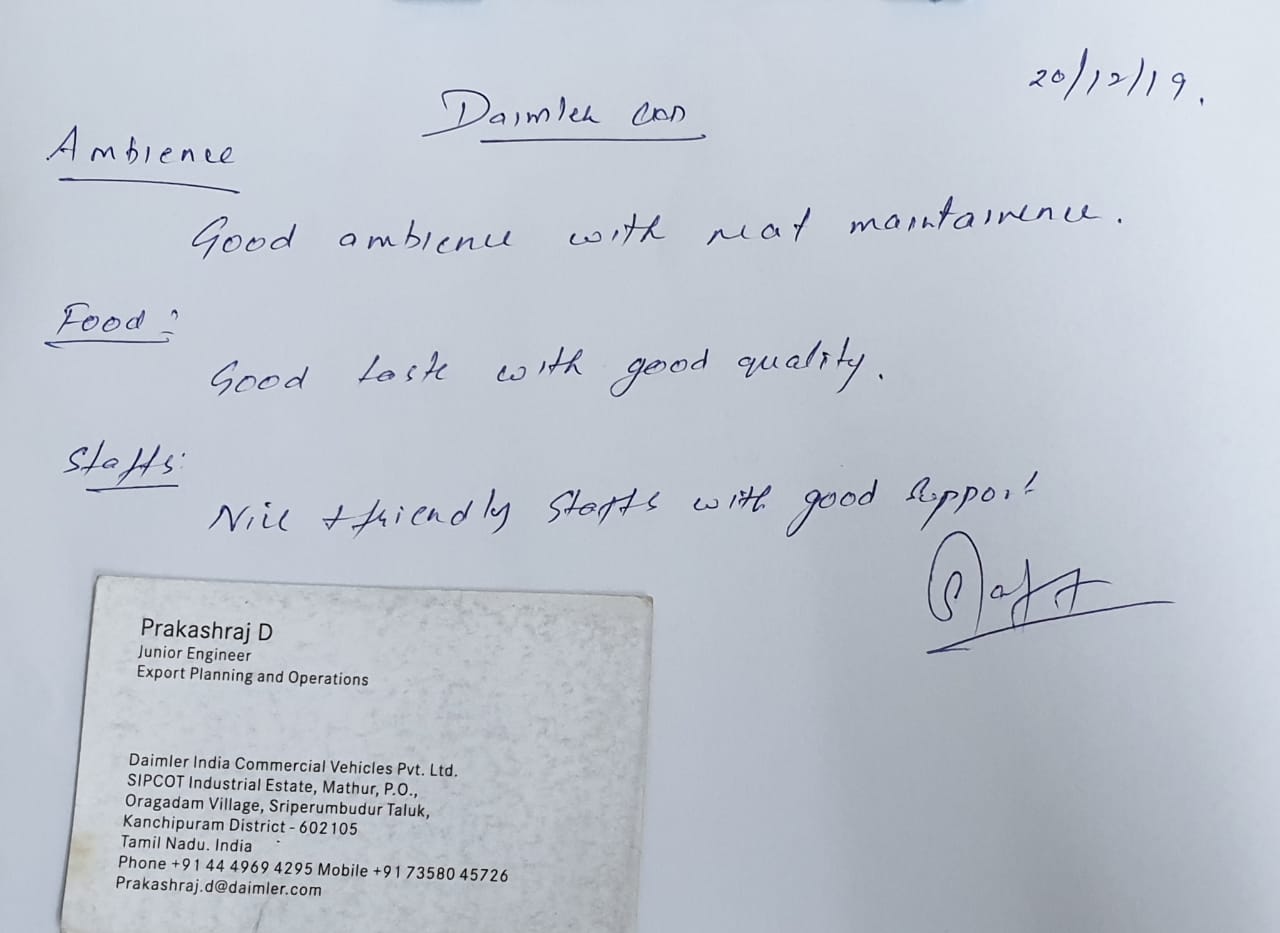 20/12/19.
Daimler
Ambience
Good ambience with neat maintainence.
Food:
Good taste with good quality.
Staffs:
Nice & friendly Staffs with good support
Prakashraj D
Junior Engineer
Export Planning and Operations
Daimler India Commercial Vehicles Pvt. Ltd.
SIPCOT Industrial Estate, Mathur, P.O.,
Oragadam Village, Sriperumbudur Taluk,
Kanchipuram District - 602105
Tamil Nadu. India
Phone +91 44 4969 4295 Mobile +91 73580 45726
Prakashraj.d@daimler.com